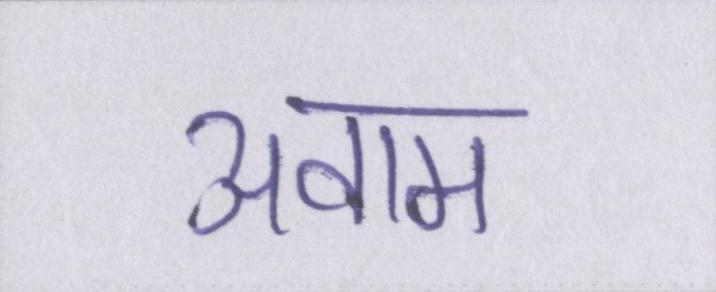 अवाम